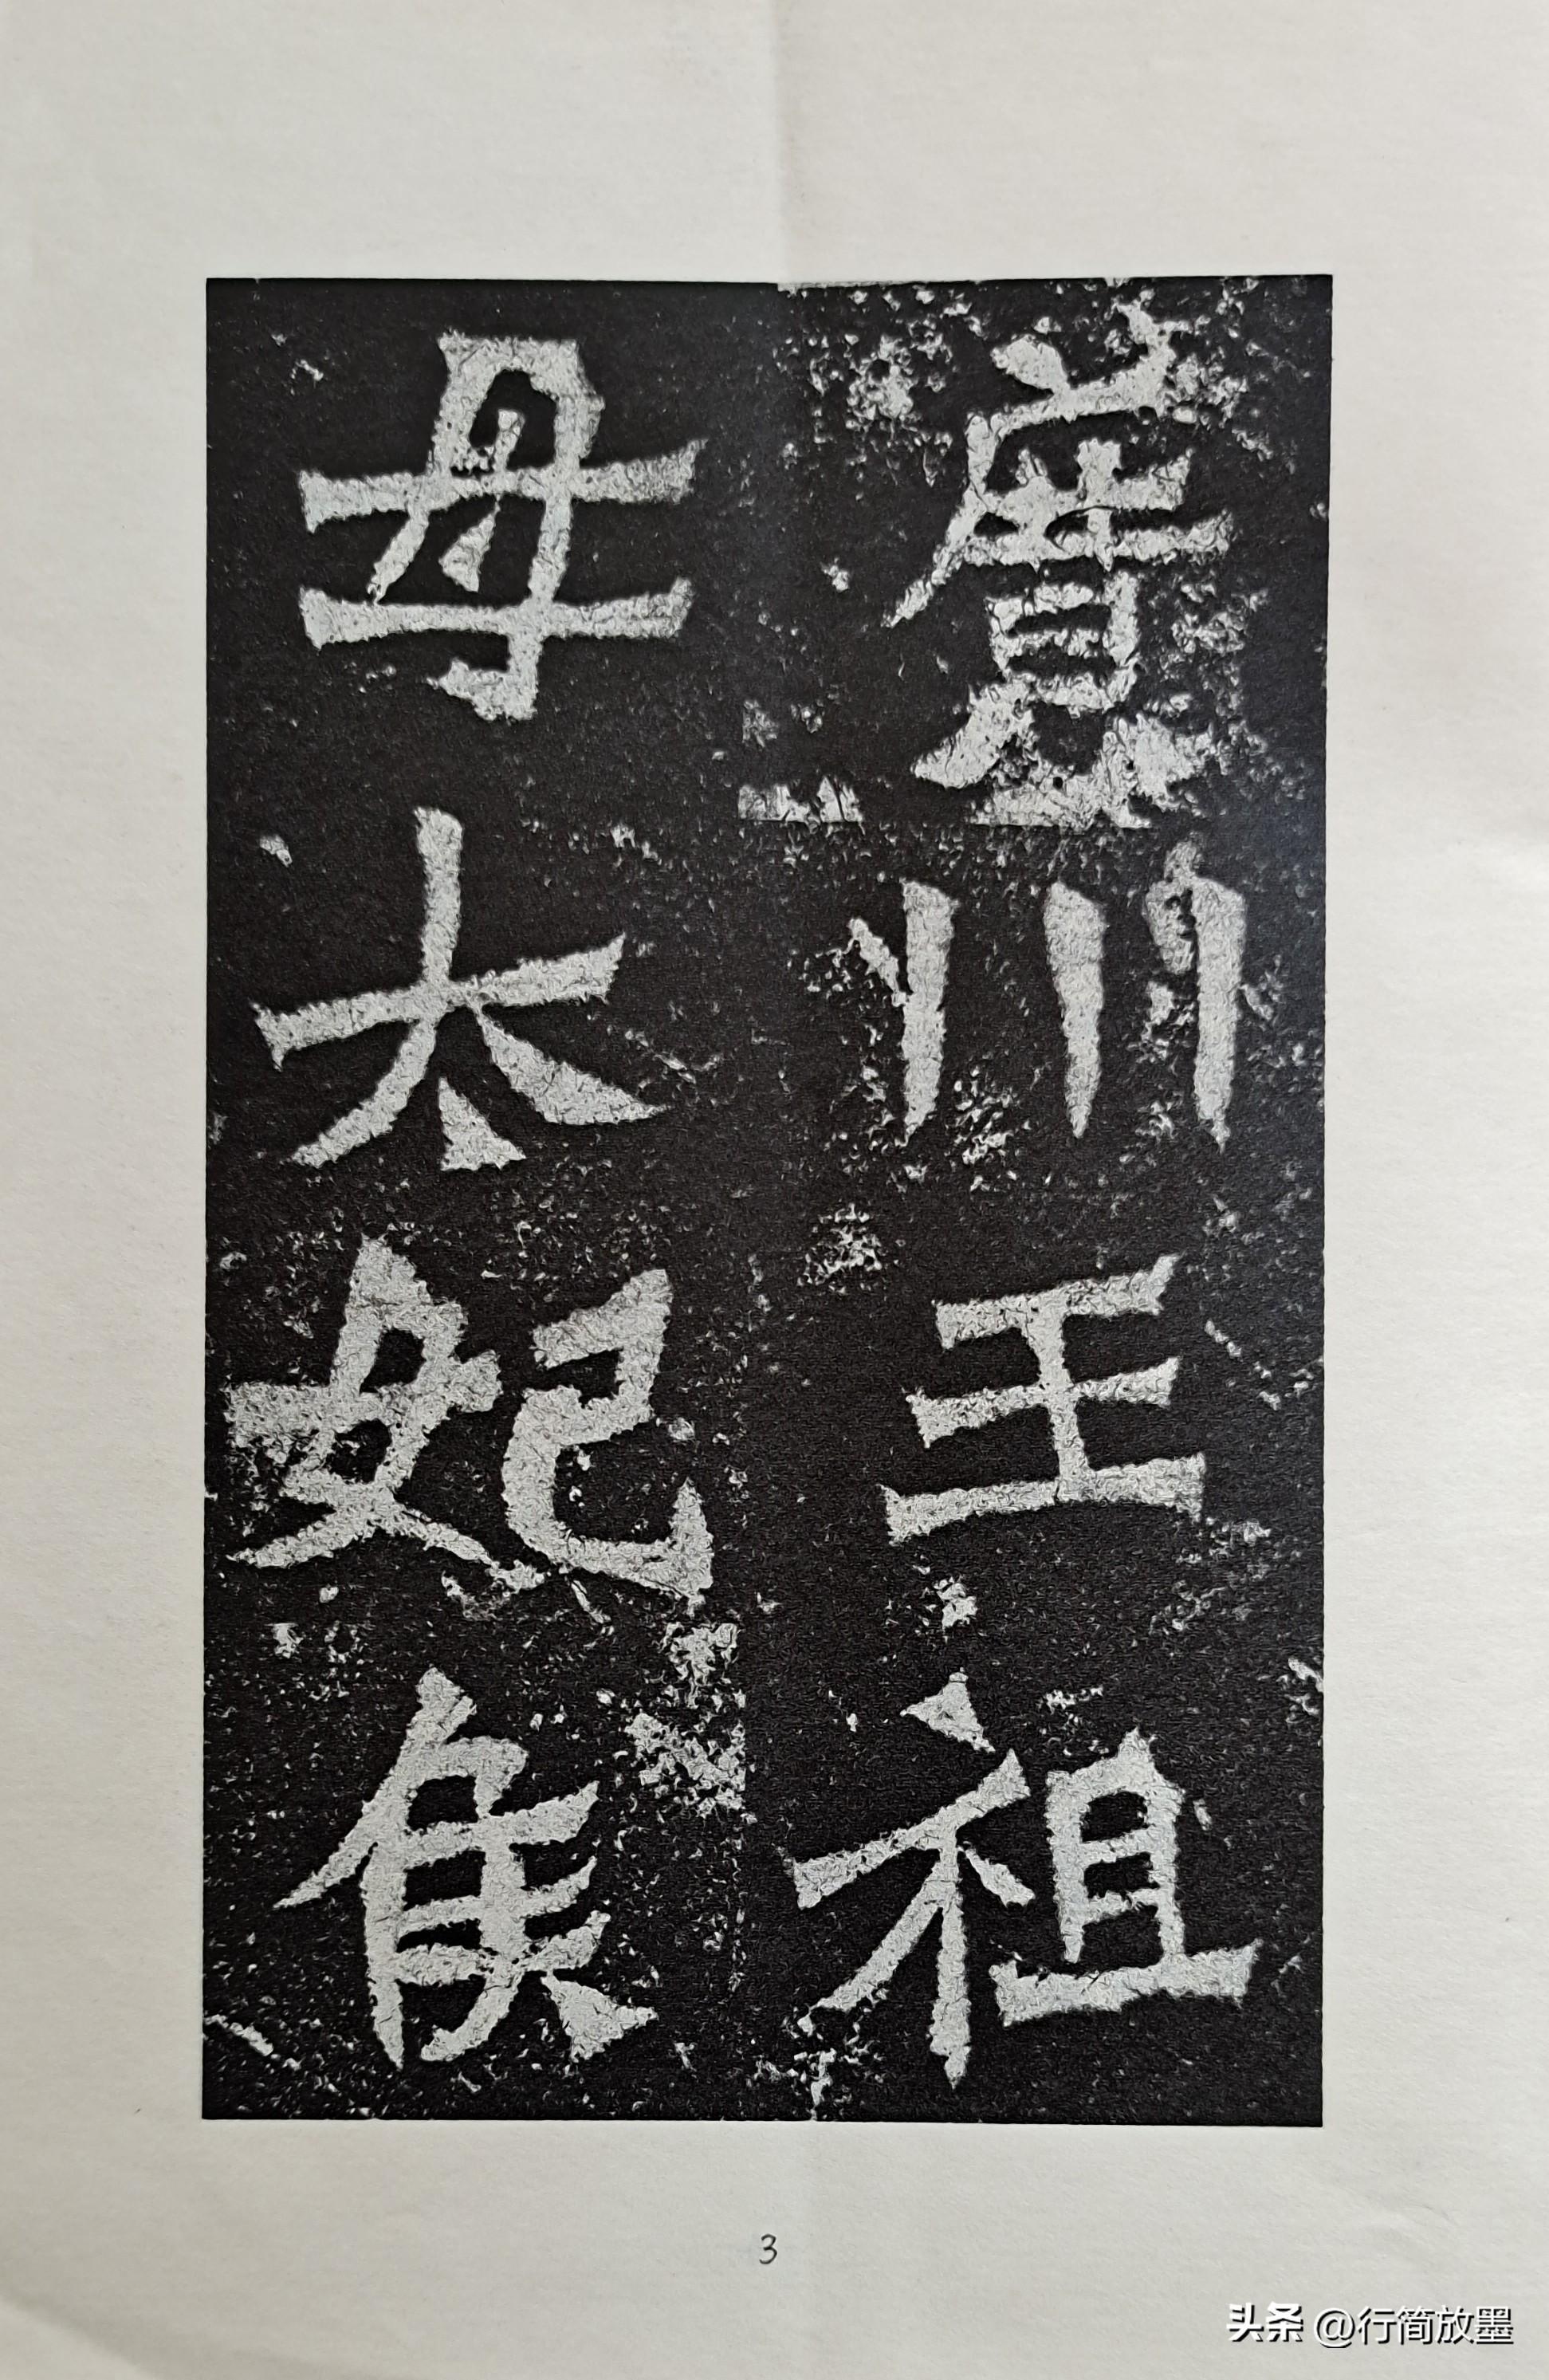 廣川王祖
母太妃侯
3
头条 @行简放墨